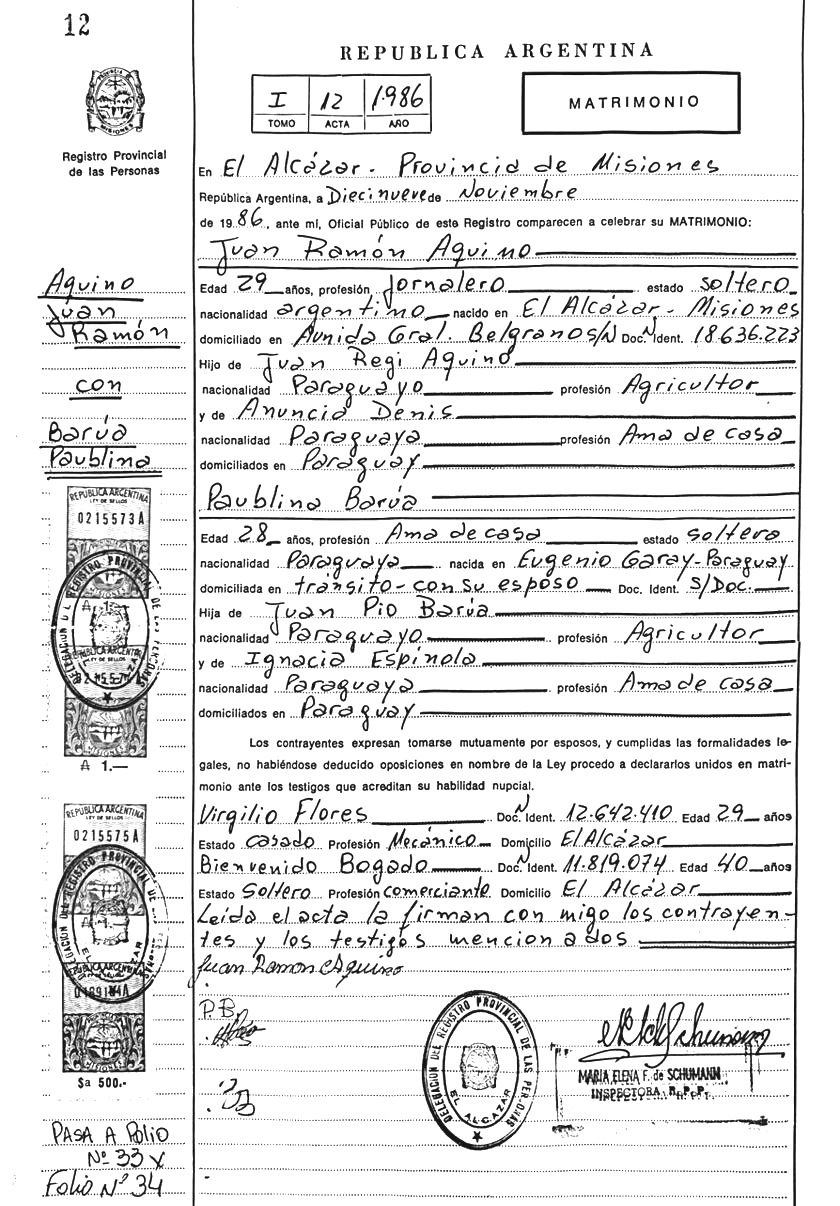 12
REPUBLICA ARGENTINA
I 12 1.986
TOMO ACTA AÑO
MATRIMONIO
Provincia de
MISIONES
Registro Provincial
de las Personas
En El Alcázar - Provincia de Misiones
República Argentina, a Diecinueve de Noviembre
de 19 86, ante mí, Oficial Público de este Registro comparecen a celebrar su MATRIMONIO:
Juan Ramón Aquino
Edad 29 años, profesión Jornalero estado soltero
nacionalidad argentino nacido en El Alcázar - Misiones
domiciliado en Avnida Gral. Belgrano S/N Doc. N Ident. 18.636.223
Hijo de Juan Regi Aquino
nacionalidad Paraguayo profesión Agricultor
y de Anuncia Denis
nacionalidad Paraguaya profesión Ama de casa
domiciliados en Paraguay
Paublina Barúa
Edad 28 años, profesión Ama de casa estado soltera
nacionalidad Paraguaya nacida en Eugenio Garay - Paraguay
domiciliada en tránsito - con su esposo Doc. Ident. S/Doc.
Hija de Juan Pio Barúa
nacionalidad Paraguayo profesión Agricultor
y de Ignacia Espínola
nacionalidad Paraguaya profesión Ama de casa
domiciliados en Paraguay
Los contrayentes expresan tomarse mutuamente por esposos, y cumplidas las formalidades le-
gales, no habiéndose deducido oposiciones en nombre de la Ley procedo a declararlos unidos en matri-
monio ante los testigos que acreditan su habilidad nupcial.
Virgilio Flores Doc. N Ident. 12.642.410 Edad 29 años
Estado casado Profesión Mecánico Domicilio El Alcázar
Bienvenido Bogado Doc. N Ident. 11.819.074 Edad 40 años
Estado Soltero Profesión comerciante Domicilio El Alcázar
Leida el acta la firman con migo los contrayen-
tes y los testigos mencionados
Juan Ramon Aquino
P.B.
DELEGACION DEL REGISTRO PROVINCIAL DE LAS PERSONAS
EL ALCAZAR
MARIA ELENA F. de SCHUMANN
INSPECTORA R.P.P.
Aquino
Juan
Ramón
con
Barúa
Paublina
REPUBLICA ARGENTINA
LEY DE SELLOS
0215573A
DELEGACION DEL REGISTRO PROVINCIAL DE LAS PERSONAS
REPUBLICA ARGENTINA
LEY DE SELLOS
MISIONES
₳ 1.—
REPUBLICA ARGENTINA
LEY DE SELLOS
0215575A
DELEGACION DEL REGISTRO PROVINCIAL DE
EL ALCAZAR
REPUBLICA ARGENTINA
MISIONES
$a 500.-
PASA A FOLIO
Nº 33 y
Folio Nº 34